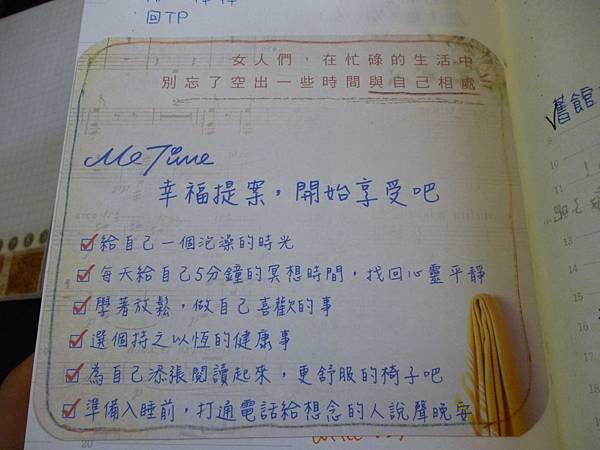 回TP
女人們，在忙碌的生活中
別忘了空出一些時間與自己相處
Me Time
幸福提案，開始享受吧
給自己一個泡澡的時光
每天給自己5分鐘的冥想時間，找回心靈平靜
學著放鬆，做自己喜歡的事
選個持之以恆的健康事
為自己添張閱讀起來，更舒服的椅子吧
準備入睡前，打通電話給想念的人說聲晚安
舊館
9
10
11
13
14
15
16
17
18
20